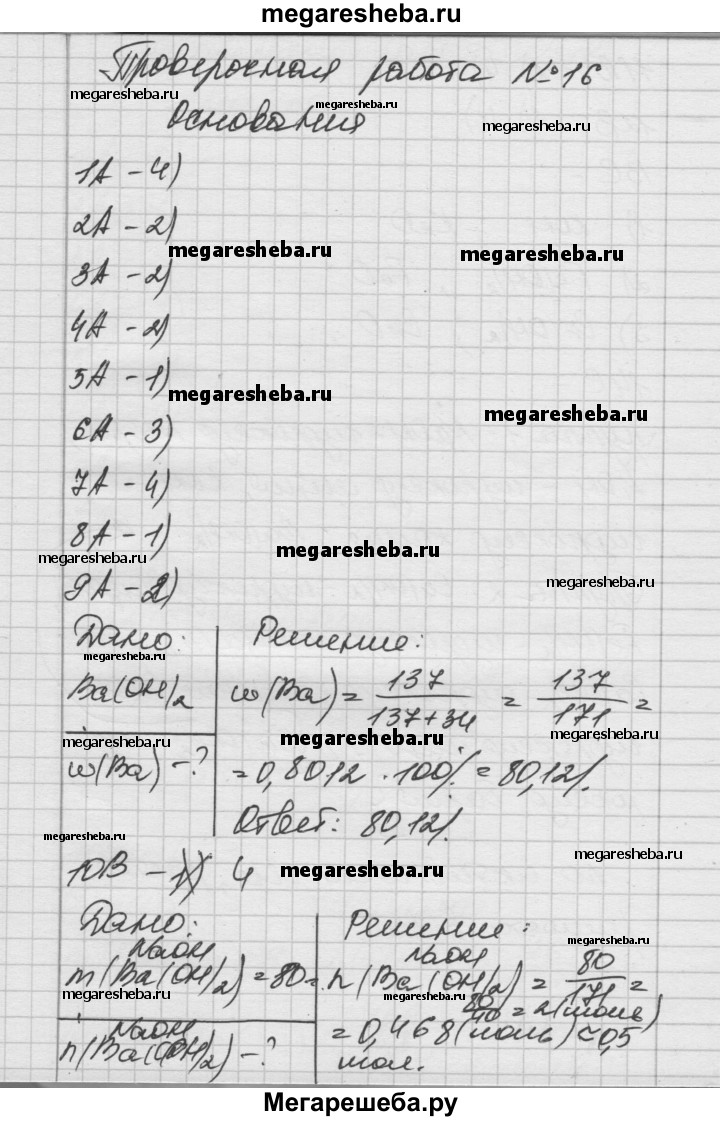 megaresheba.ru
Проверочная работа №16
megaresheba.ru megaresheba.ru
Основания megaresheba.ru
1А - 4)
2А - 2)
megaresheba.ru megaresheba.ru
3А - 2)
4А - 2)
5А - 1)
megaresheba.ru megaresheba.ru
6А - 3)
7А - 4)
8А - 1)
megaresheba.ru megaresheba.ru
9А - 2) megaresheba.ru
Дано: Решение:
megaresheba.ru
Ba(OH)2 w(Ba) = 137/(137+34) = 137/171 =
megaresheba.ru megaresheba.ru megaresheba.ru
w(Ba) - ? = 0,8012 · 100% = 80,12%.
Ответ: 80,12%.
megaresheba.ru megaresheba.ru
10В - 4 megaresheba.ru
Дано: Решение:
NaOH NaOH megaresheba.ru
m(Ba(OH)2) = 80 n(Ba(OH)2) = 80/171 =
megaresheba.ru megaresheba.ru
80/40 = 2 (моль)
NaOH = 0,468 (моль) ≈ 0,5
n(Ba(OH)2) - ? мол.
megaresheba.ru megaresheba.ru
Мегарешеба.ру